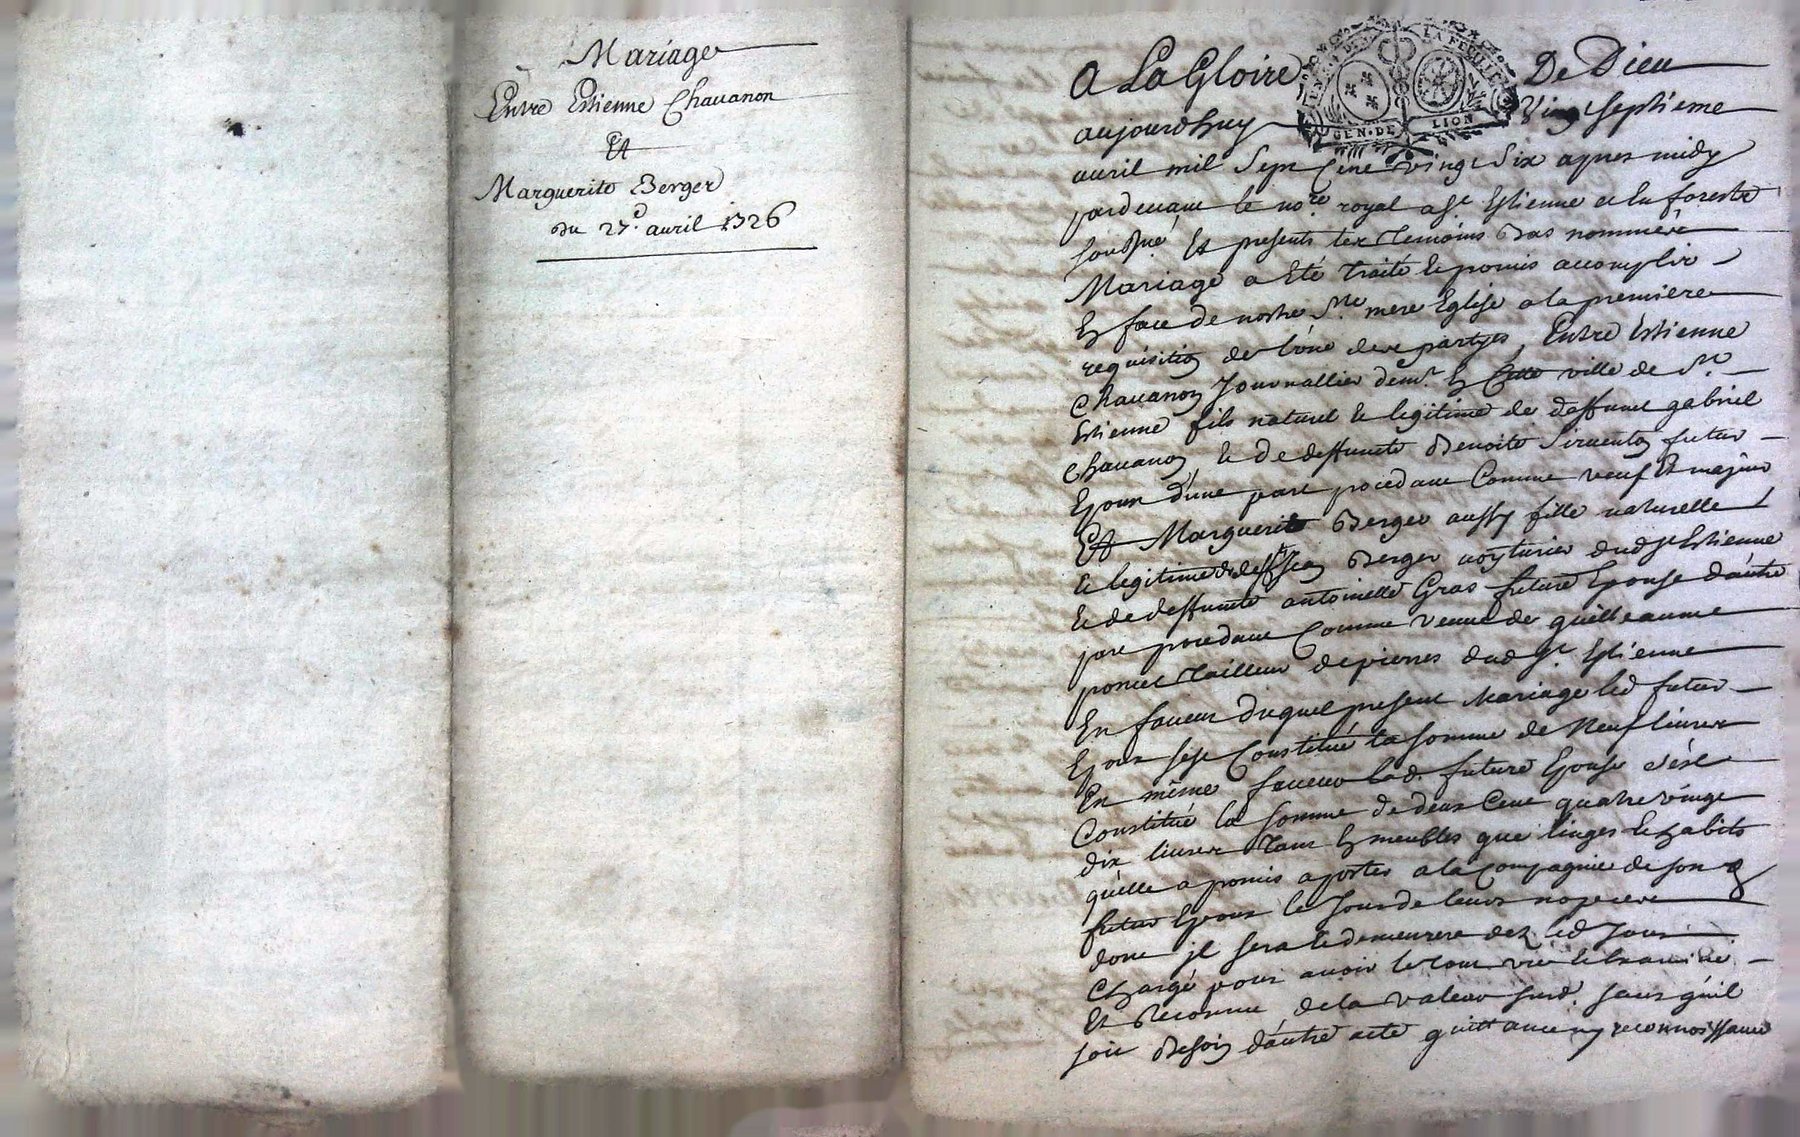 Mariage
Entre Estienne Chauanon
Et
Marguerite Berger
du 27e. auril 1726
A La Gloire De Dieu
aujourdhuy Vingt septieme
GEN. DE LION
LA FEUILLE
auril mil sept cent vingt six apres midy
pardeuant le nore royal a St Estienne et en forestz
soubsné Et presents les temoins bas nommés
Mariage a Eté traité et promis accomplir
En face de nostre Ste mere Eglise a la premiere
requisition de l'une des partyes, Entre Estienne
Chauanon Journallier demt. En Cette ville de St
Estienne fils naturel et legitime de deffunct gabriel
Chauanon et de deffuncte Benoite futur
Epoux d'une part procedant Comme veuf Et majeur
Et Marguerite Berger aussy fille naturelle
et legitime de defft Jean Berger voyturier dud St Estienne
et de deffuncte antoinette Gras future Epouse d'autre
part procedant Comme veuue de guilleaume
poncet tailleur de pierres dud St. Estienne
En faueur duquel present Mariage led futur
Epoux s'est Constitué la somme de Neuf liures
En même faueur lad. future Epouse s'est
Constitué la somme de deux Cent quatre vingt
dix liures tant En meubles que linges et habits
qu'elle a promis aporter a la Compagnie de son
futur Epoux le jour de leurs nopces
dont il sera et demeurera dez led Jour
Chargé pour auoir le tout vû et Examiné
Et Reconnu de la valeur susd. sans qu'il
soit Besoin d'autre acte quittance ny reconnoissance